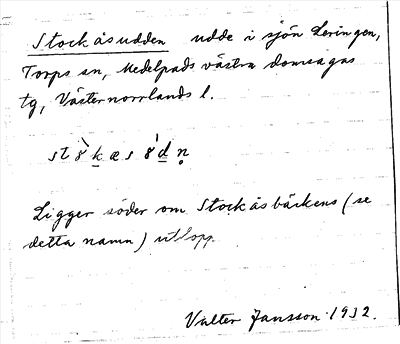 Stockåsudden udde i sjön Leringen,
Torps sn, Medelpads västra domsagas
tg, Västernorrlands l.
stò̱kæsó̱dn̥
Ligger söder om Stockåsbäckens (se
detta namn) utlopp.
Valter Jansson 1932.